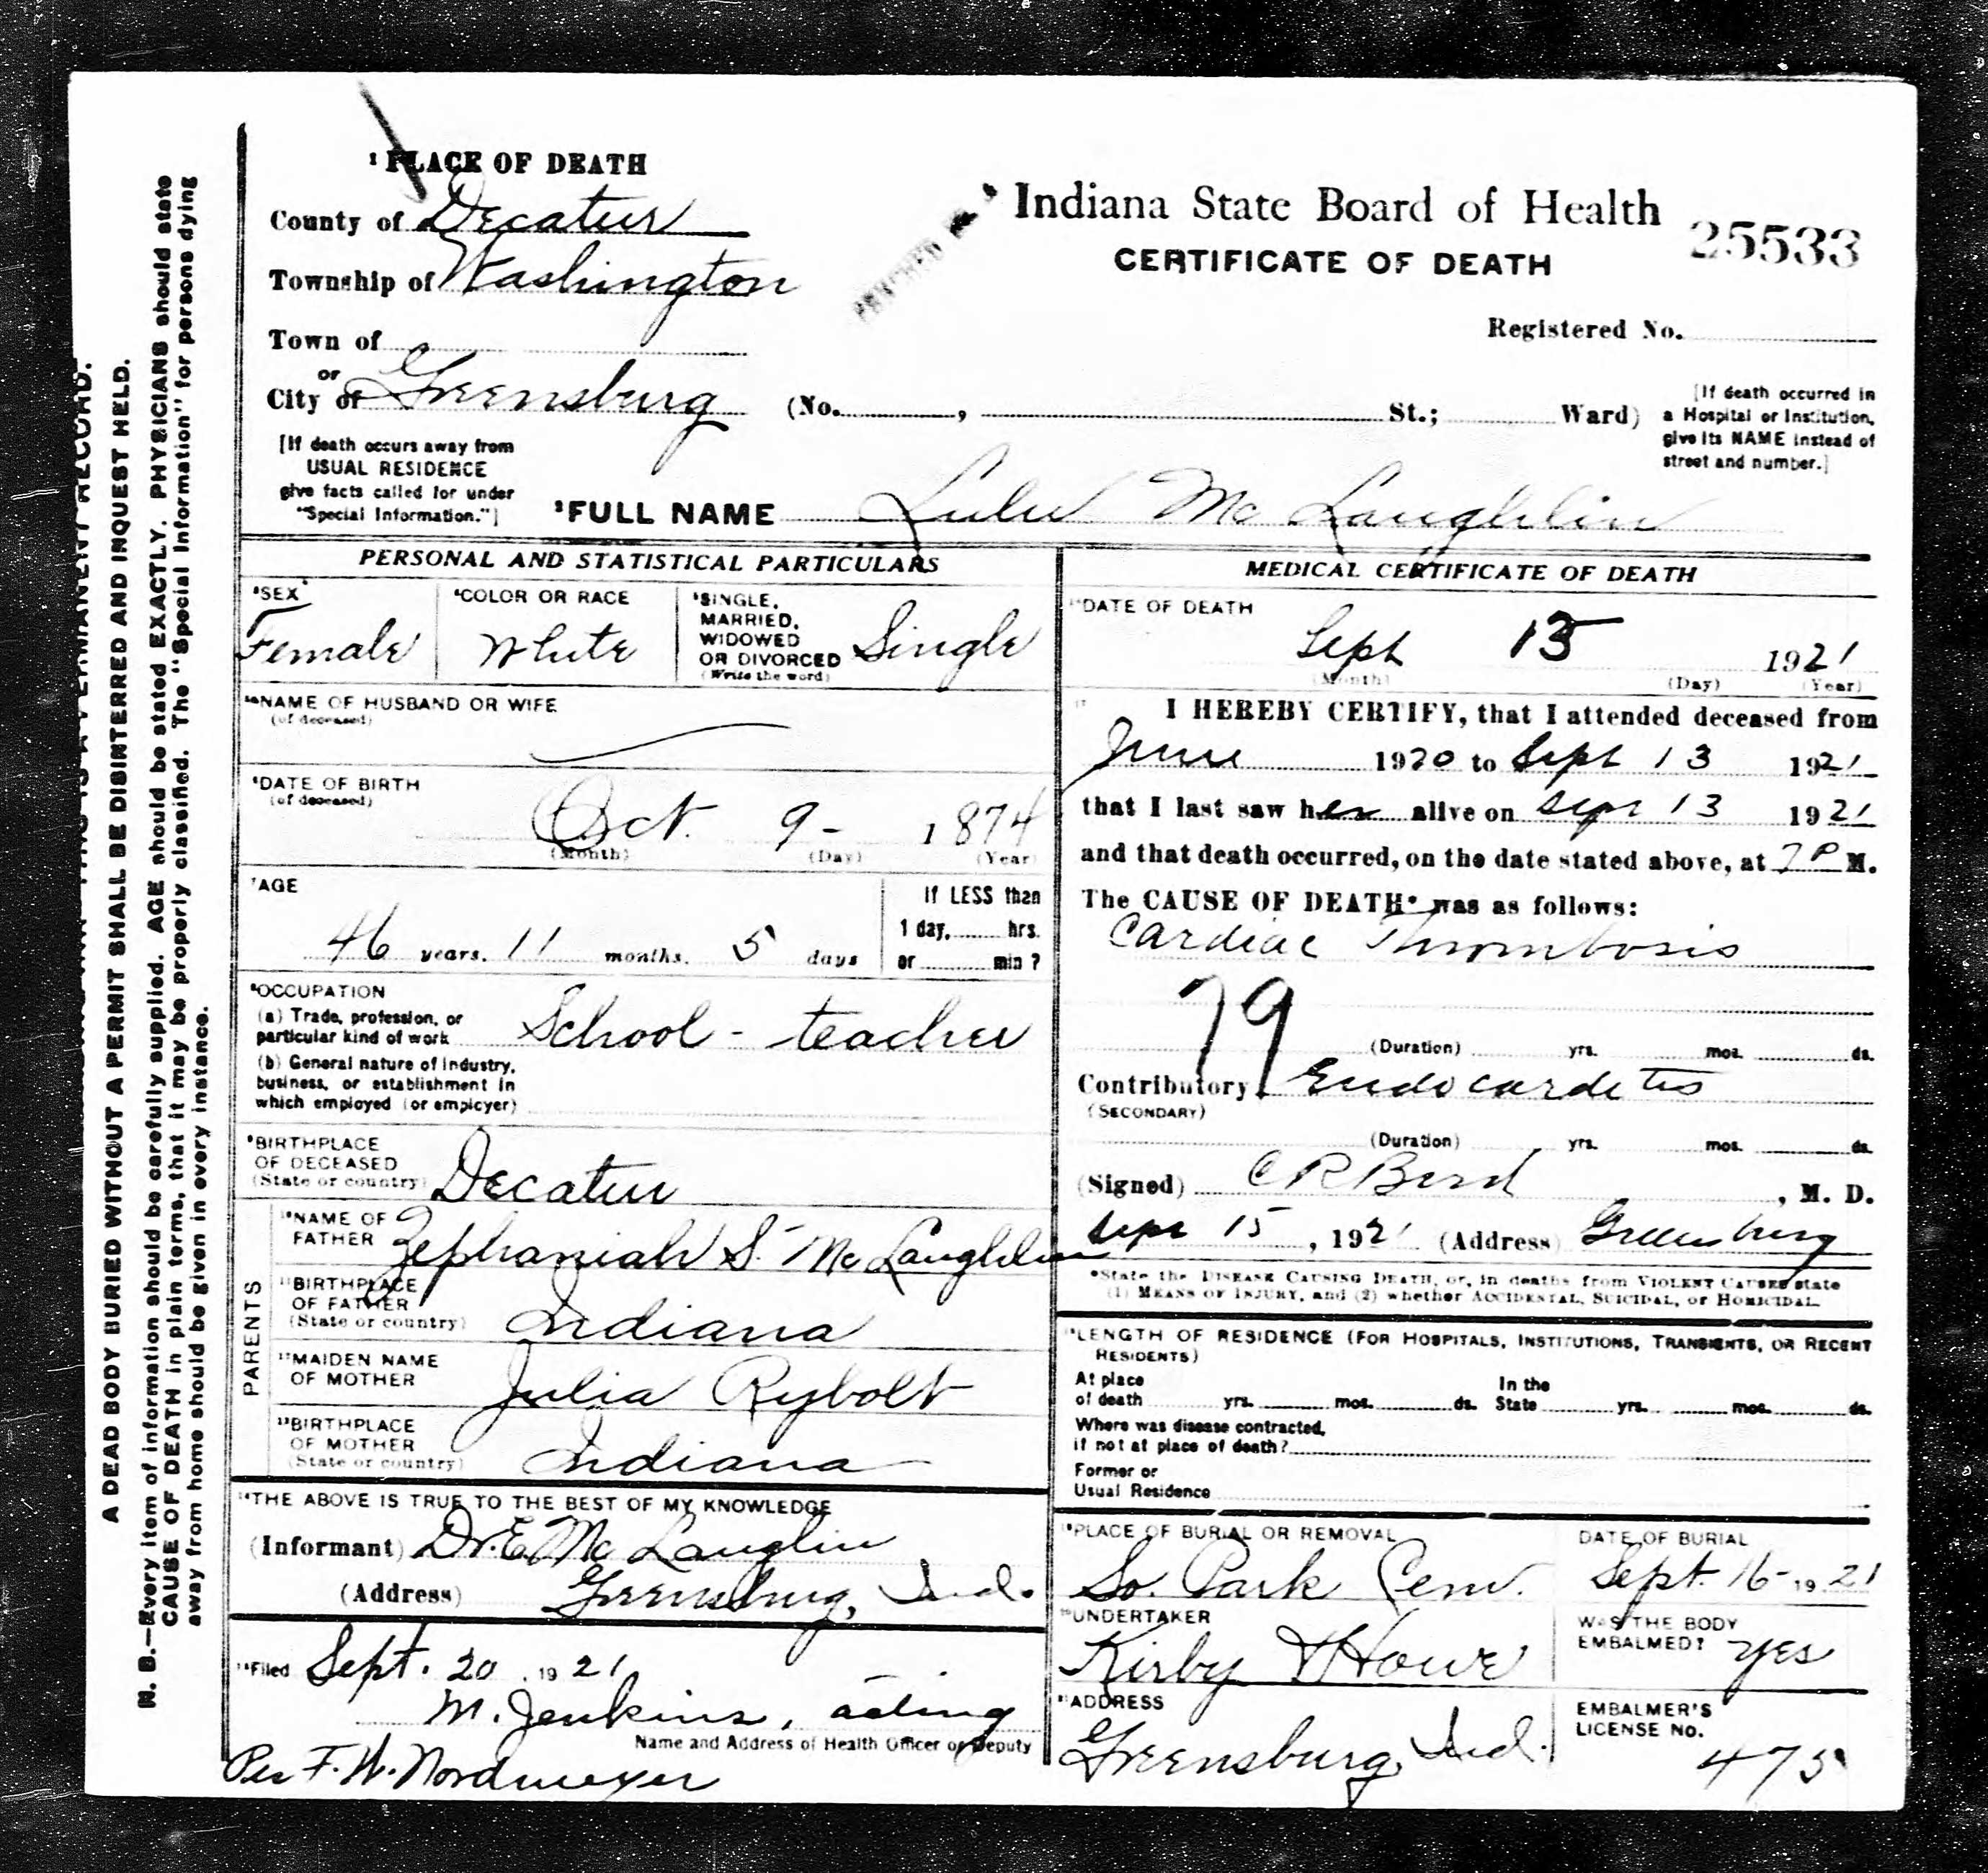 ¹PLACE OF DEATH
County of Decatur
Township of Washington
Town of
or
City of Greensburg (No. , St.; Ward)
[If death occurs away from
USUAL RESIDENCE
give facts called for under
"Special Information."]
Indiana State Board of Health
CERTIFICATE OF DEATH
25533
Registered No.
[If death occurred in
a Hospital or Institution,
give its NAME instead of
street and number.]
²FULL NAME Lulu Mc Laughlin
PERSONAL AND STATISTICAL PARTICULARS
³SEX
Female
⁴COLOR OR RACE
White
⁵SINGLE,
MARRIED,
WIDOWED
OR DIVORCED
(Write the word)
Single
NAME OF HUSBAND OR WIFE
(of deceased)
⁶DATE OF BIRTH
(of deceased)
Oct. 9- 1874
(Month) (Day) (Year)
⁷AGE
46 years. 11 months. 5 days
If LESS than
1 day, hrs.
or min ?
⁸OCCUPATION
(a) Trade, profession, or
particular kind of work
School - teacher
(b) General nature of industry,
business, or establishment in
which employed (or employer)
⁹BIRTHPLACE
OF DECEASED
(State or country)
Decatur
PARENTS
¹⁰NAME OF
FATHER
Zephaniah S. McLaughlin
¹¹BIRTHPLACE
OF FATHER
(State or country)
Indiana
¹²MAIDEN NAME
OF MOTHER
Julia Rybolt
¹³BIRTHPLACE
OF MOTHER
(State or country)
Indiana
¹⁴THE ABOVE IS TRUE TO THE BEST OF MY KNOWLEDGE
(Informant) Dr. E. Mc Lauglin
(Address) Greensburg, Ind.
¹⁵Filed Sept. 20 , 1921
M. Jenkins, acting
Name and Address of Health Officer or Deputy
Per F. W. Nordmeyer
MEDICAL CERTIFICATE OF DEATH
¹⁶DATE OF DEATH
Sept 13 1921
(Month) (Day) (Year)
¹⁷ I HEREBY CERTIFY, that I attended deceased from
June 1920 to Sept 13 1921
that I last saw her alive on Sept 13 1921
and that death occurred, on the date stated above, at 7 P M.
The CAUSE OF DEATH* was as follows:
Cardiac Thrombosis
79
(Duration) yrs. mos. ds.
Contributory Endocarditis
(SECONDARY)
(Duration) yrs. mos. ds.
(Signed) C R Bird , M. D.
Sept 15 , 1921 (Address) Greensburg
*State the DISEASE CAUSING DEATH, or, in deaths from VIOLENT CAUSES state
(1) MEANS OF INJURY, and (2) whether ACCIDENTAL, SUICIDAL, or HOMICIDAL.
¹⁸LENGTH OF RESIDENCE (FOR HOSPITALS, INSTITUTIONS, TRANSIENTS, OR RECENT
RESIDENTS)
At place
of death yrs. mos. ds.
In the
State yrs. mos. ds.
Where was disease contracted,
if not at place of death?
Former or
Usual Residence
¹⁹PLACE OF BURIAL OR REMOVAL
So. Park Cem.
DATE OF BURIAL
Sept. 16- 1921
²⁰UNDERTAKER
Kirby & Howe
WAS THE BODY
EMBALMED? yes
²¹ADDRESS
Greensburg, Ind.
EMBALMER'S
LICENSE NO.
475
A DEAD BODY BURIED WITHOUT A PERMIT SHALL BE DISINTERRED AND INQUEST HELD.
N. B.—Every item of information should be carefully supplied. AGE should be stated EXACTLY. PHYSICIANS should state
CAUSE OF DEATH in plain terms, that it may be properly classified. The "Special Information" for persons dying
away from home should be given in every instance.